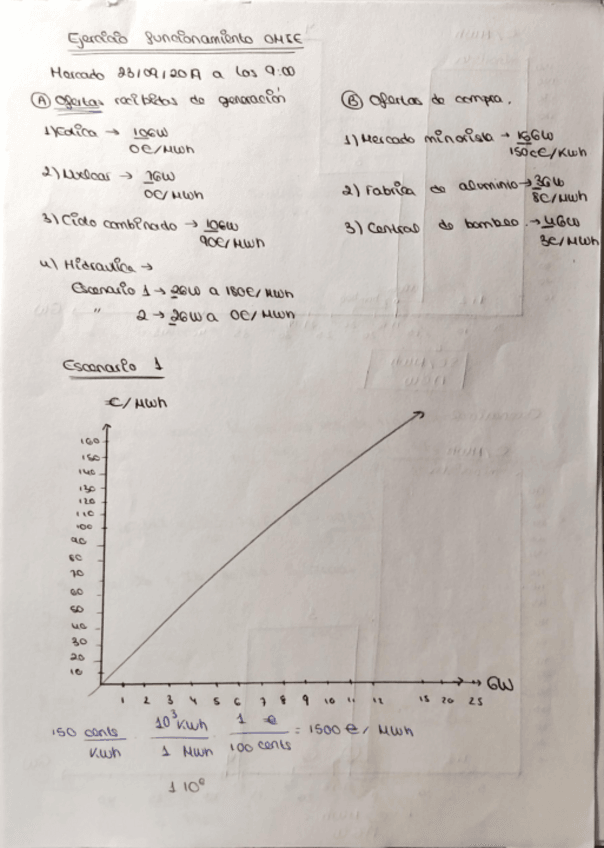 Ejercicio funcionamiento OMIE
Mercado 23/09/20 A las 9:00
Ⓐ Ofertas recibidas de generación
1) Eólica → 10GW
0€/MWh
2) Nuclear → 7GW
0€/MWh
3) Ciclo combinado → 10GW
90€/MWh
4) Hidraulica →
Escenario 1 → 2GW a 180€/MWh
" 2 → 2GW a 0€/MWh
Ⓑ Ofertas de compra.
1) Mercado minorista → 15GW
150c€/KWh
2) Fabrica de aluminio → 3GW
8€/MWh
3) Central de bombeo. → 4GW
3€/MWh
Escenario 1
€/MWh
160
150
140
130
120
110
100
90
80
70
60
50
40
30
20
10
1 2 3 4 5 6 7 8 9 10 11 12 15 20 25 GW
150 cents/KWh 10³ KWh/1 MWh 1 €/100 cents = 1500 €/MWh
1 10⁶